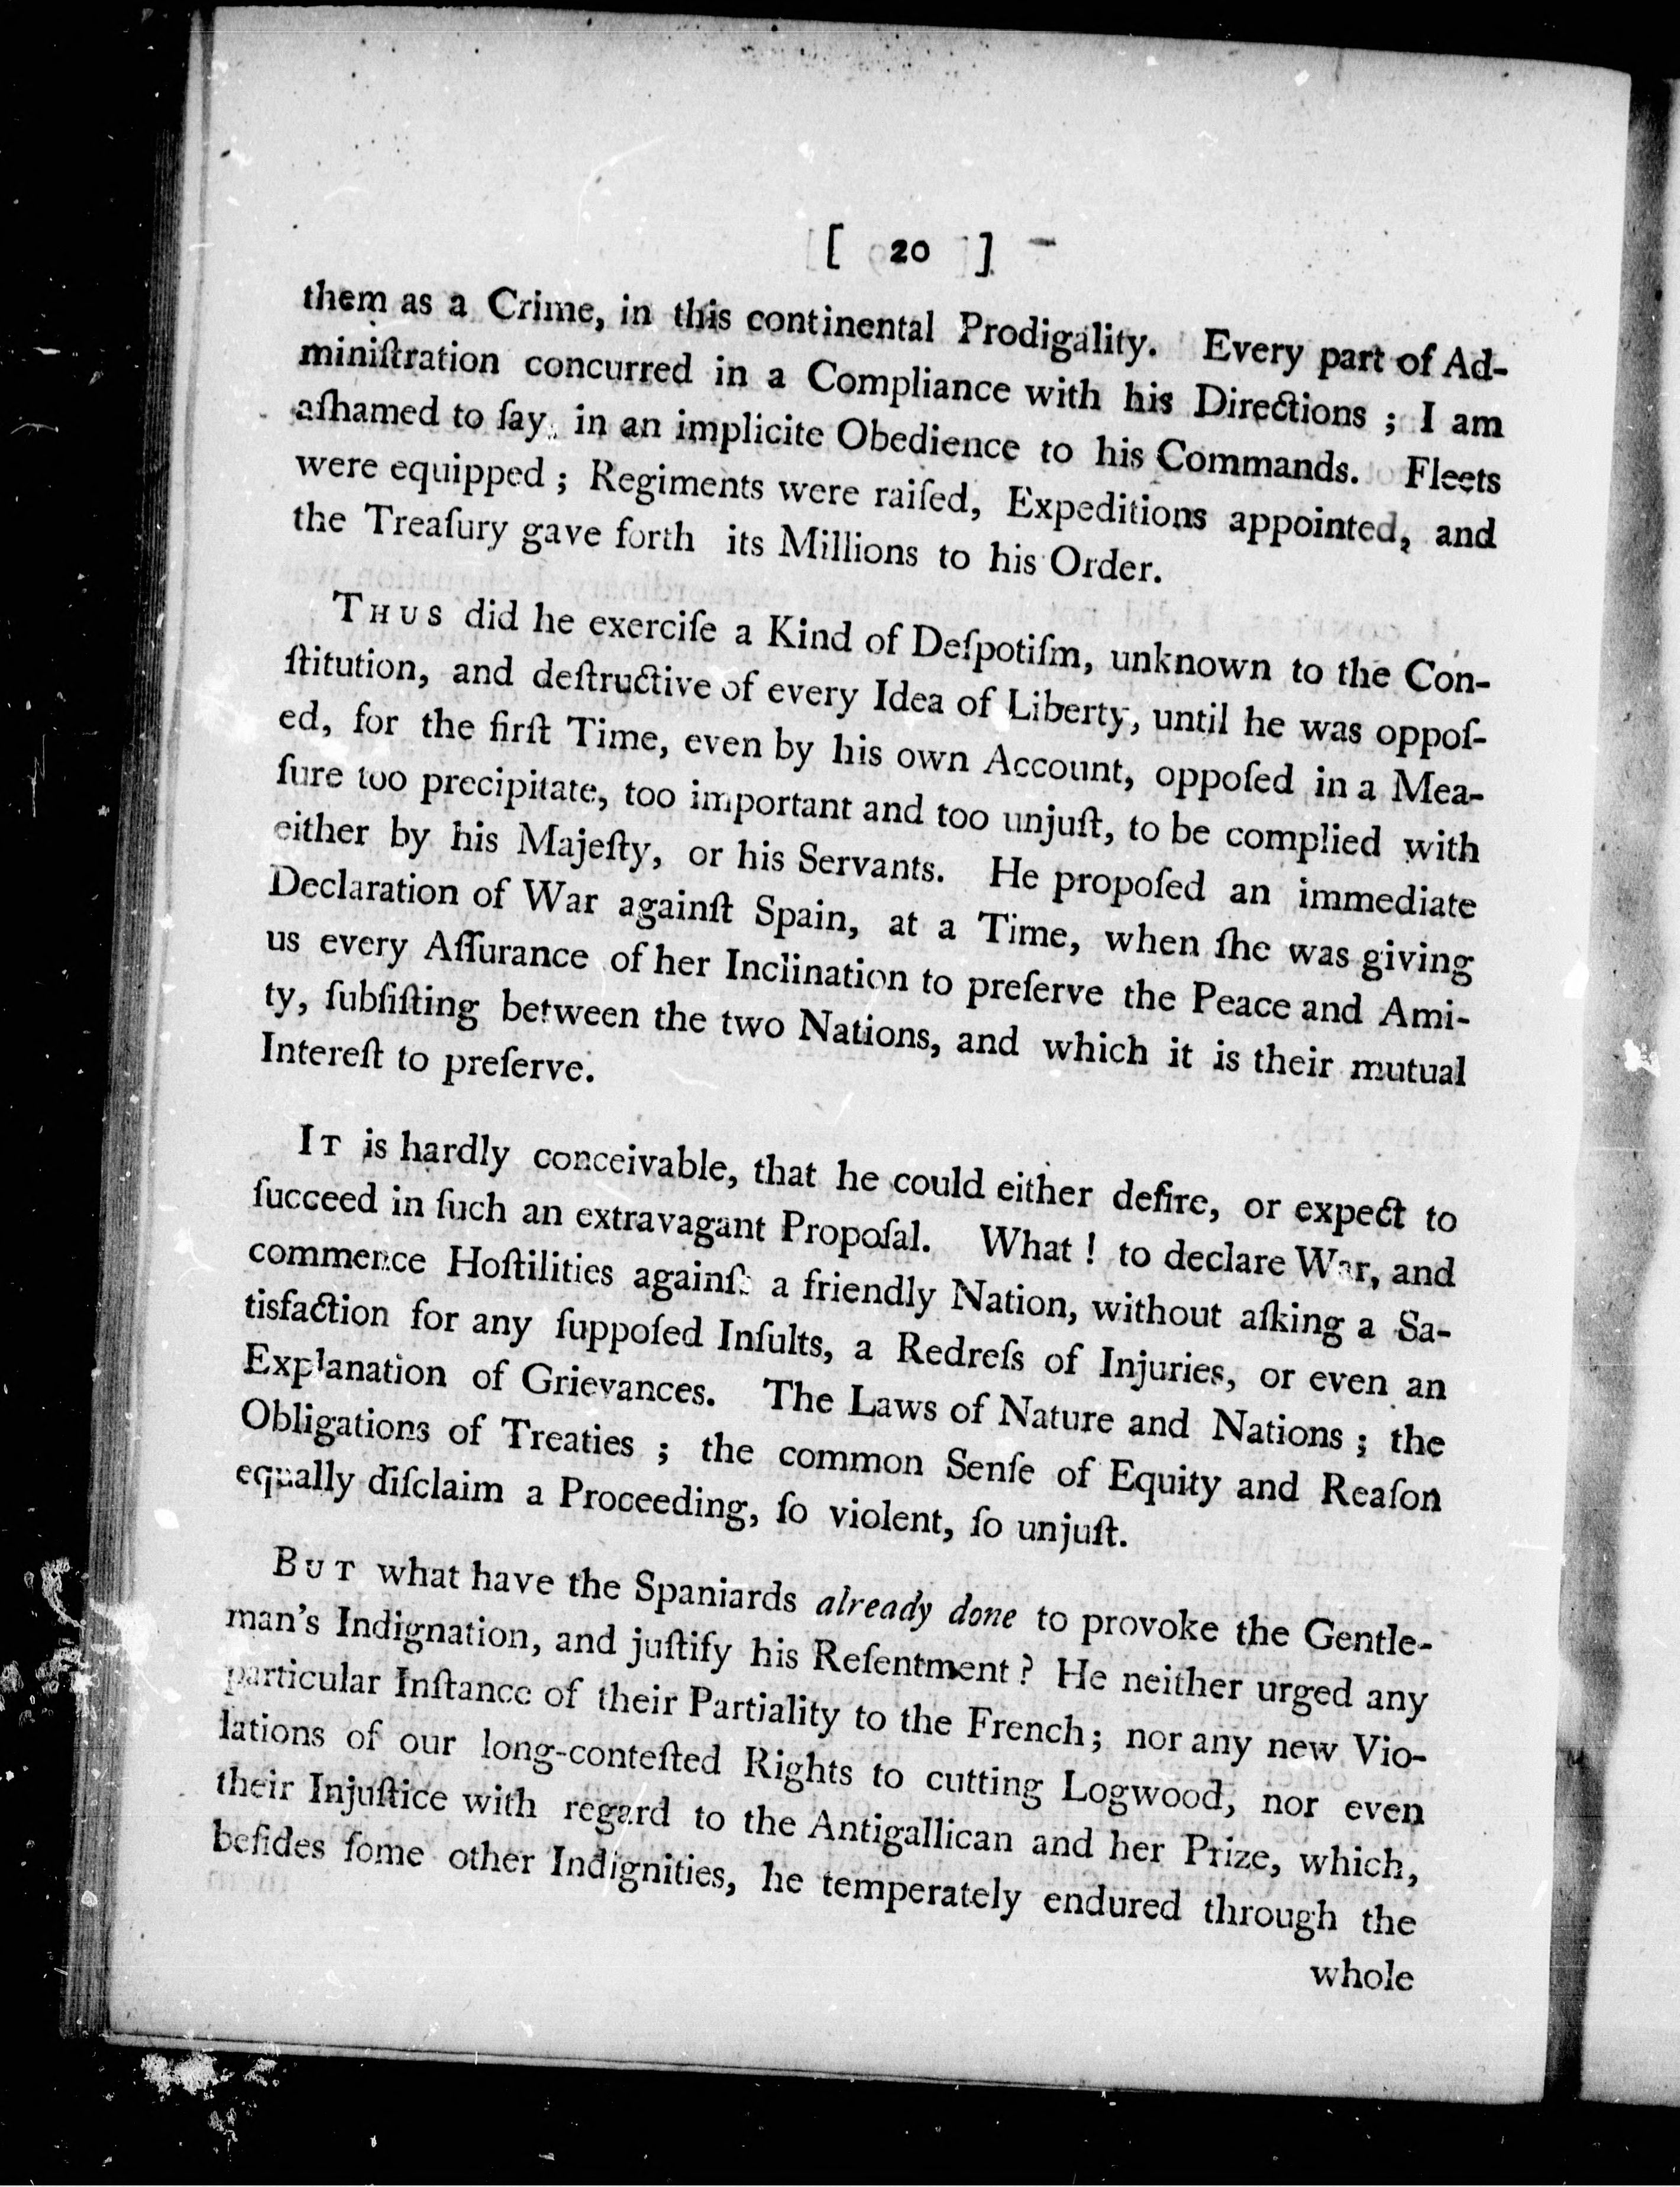 [ 20 ]
them as a Crime, in this continental Prodigality. Every part of Ad-
miniſtration concurred in a Compliance with his Directions ; I am
aſhamed to ſay, in an implicite Obedience to his Commands. Fleets
were equipped ; Regiments were raiſed, Expeditions appointed, and
the Treaſury gave forth its Millions to his Order.
THUS did he exerciſe a Kind of Deſpotiſm, unknown to the Con-
ſtitution, and deſtructive of every Idea of Liberty, until he was oppoſ-
ed, for the firſt Time, even by his own Account, oppoſed in a Mea-
ſure too precipitate, too important and too unjuſt, to be complied with
either by his Majeſty, or his Servants. He propoſed an immediate
Declaration of War againſt Spain, at a Time, when ſhe was giving
us every Aſſurance of her Inclination to preſerve the Peace and Ami-
ty, ſubſiſting between the two Nations, and which it is their mutual
Intereſt to preſerve.
IT is hardly conceivable, that he could either deſire, or expect to
ſucceed in ſuch an extravagant Propoſal. What ! to declare War, and
commence Hoſtilities againſt a friendly Nation, without aſking a Sa-
tisfaction for any ſuppoſed Inſults, a Redreſs of Injuries, or even an
Explanation of Grievances. The Laws of Nature and Nations ; the
Obligations of Treaties ; the common Senſe of Equity and Reaſon
equally diſclaim a Proceeding, ſo violent, ſo unjuſt.
BUT what have the Spaniards already done to provoke the Gentle-
man's Indignation, and juſtify his Reſentment ? He neither urged any
particular Inſtance of their Partiality to the French ; nor any new Vio-
lations of our long-conteſted Rights to cutting Logwood, nor even
their Injuſtice with regard to the Antigallican and her Prize, which,
beſides ſome other Indignities, he temperately endured through the
whole